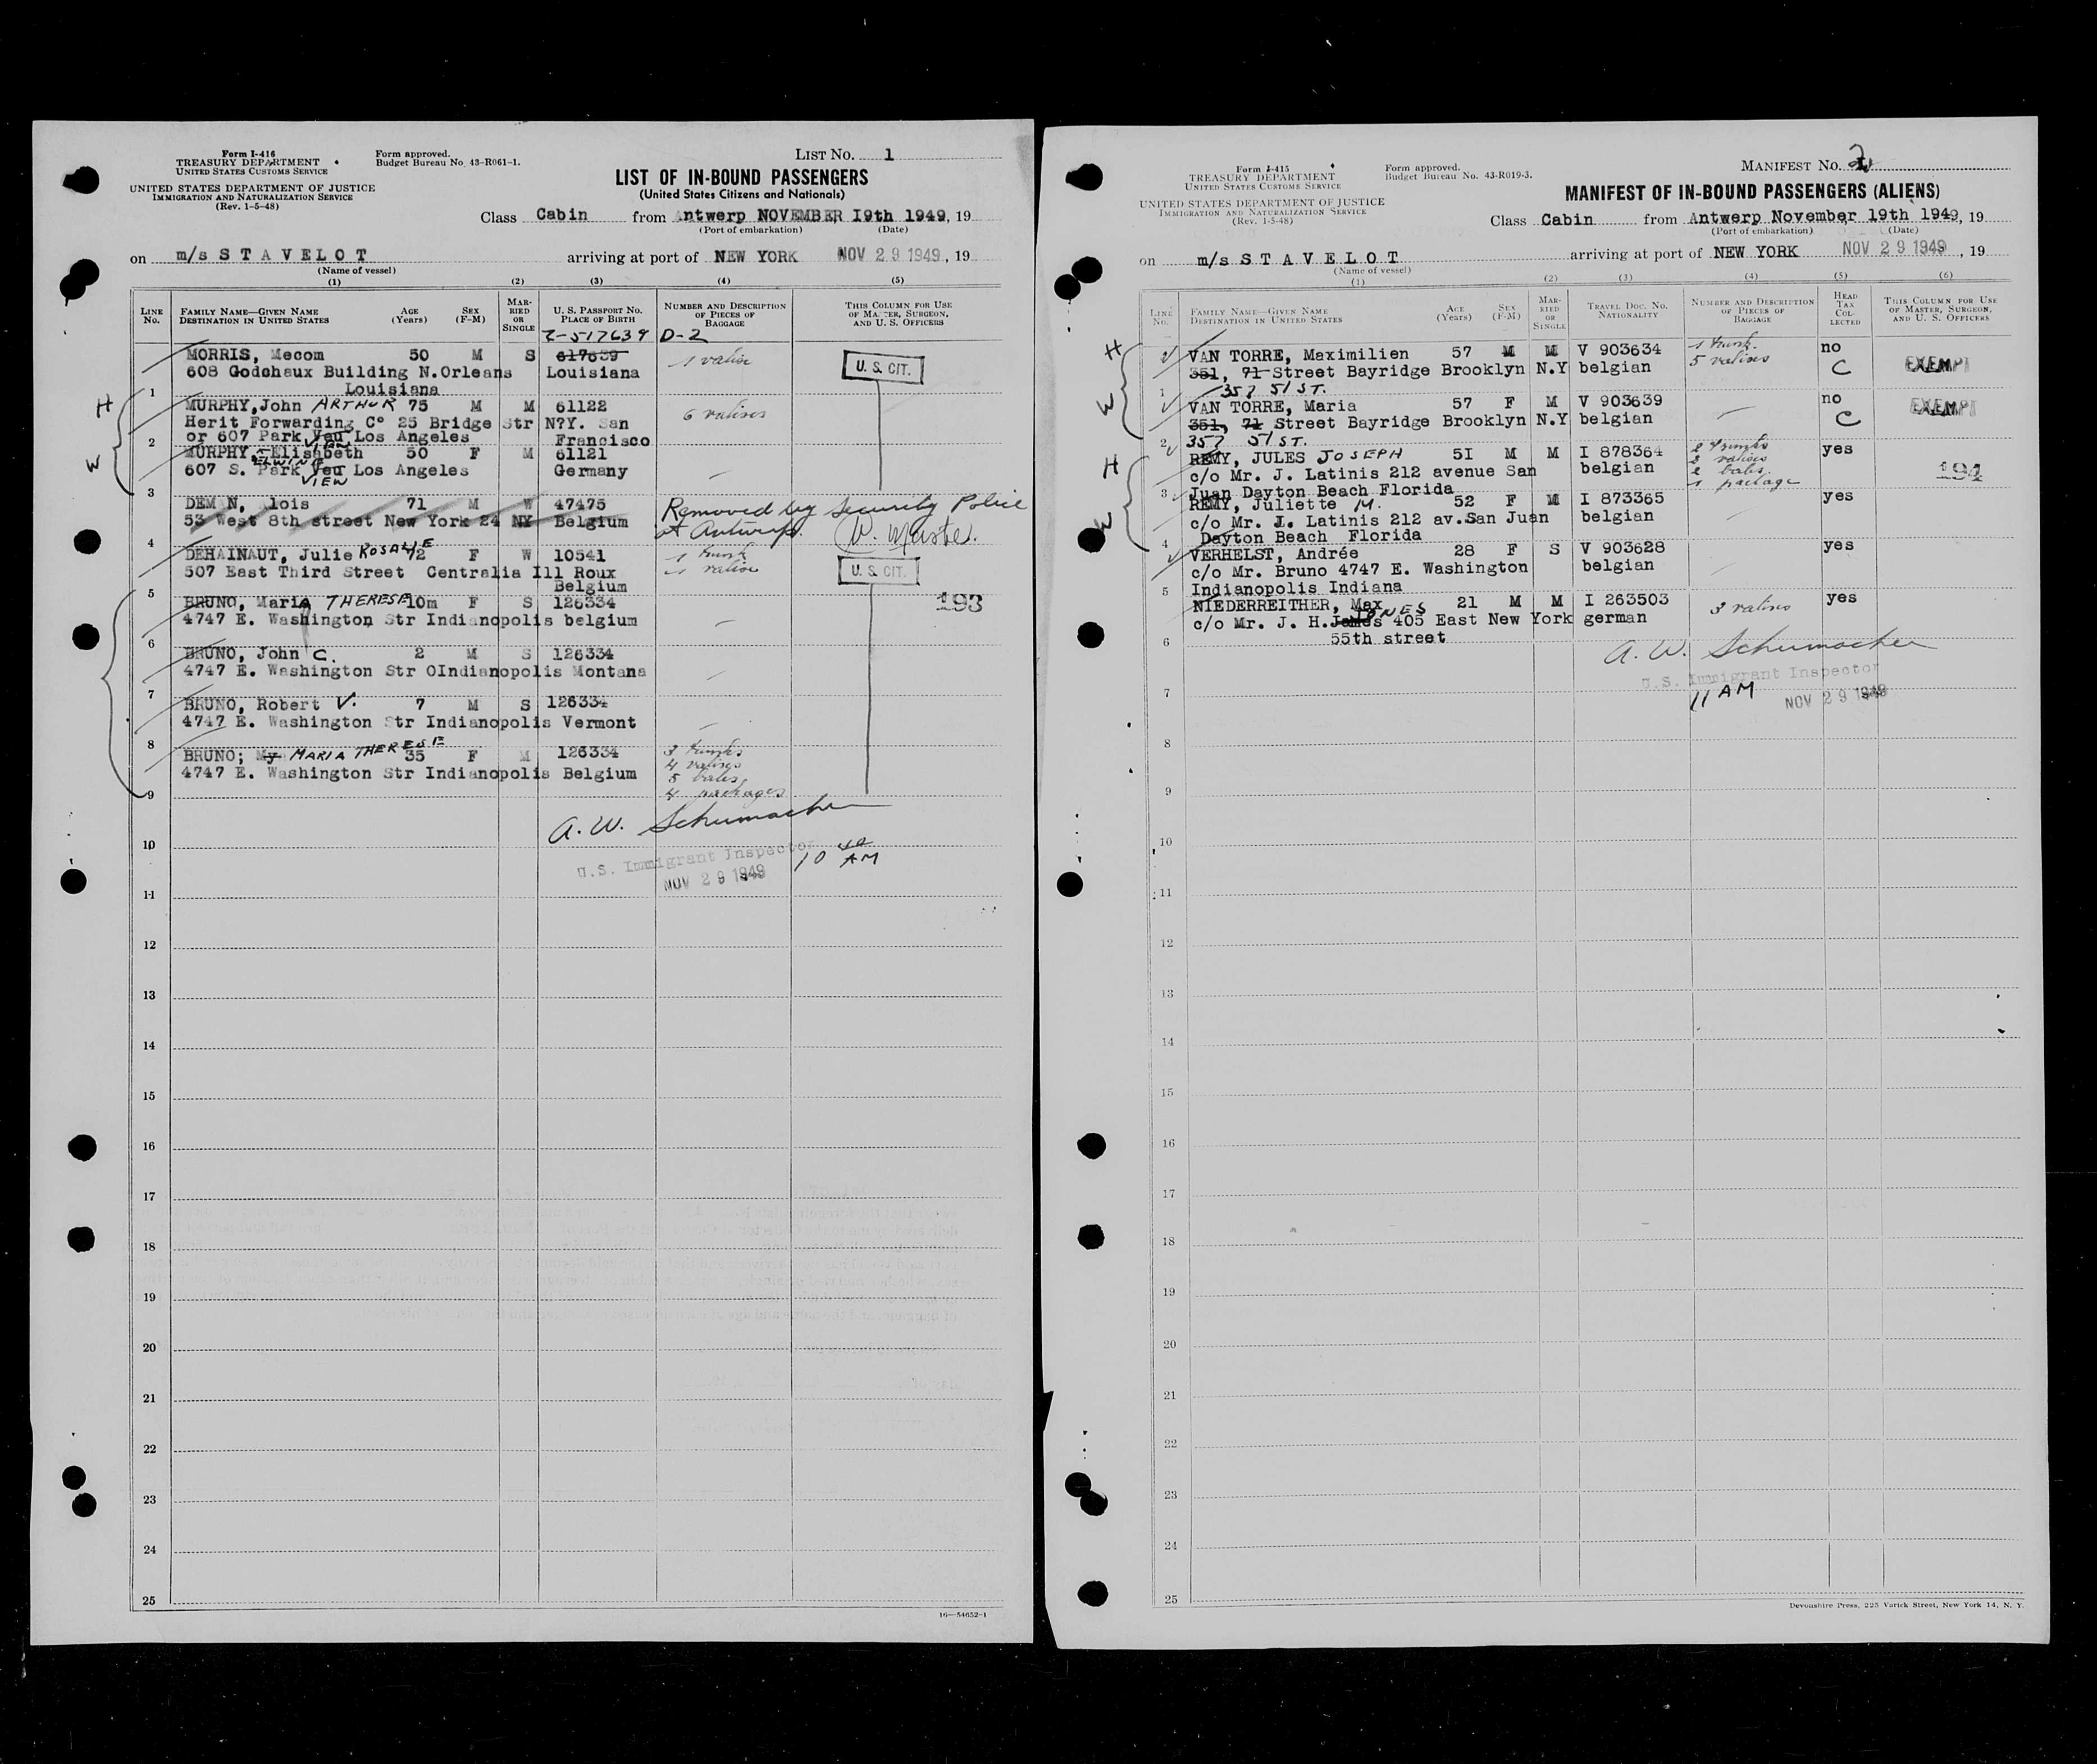 Form I-416
TREASURY DEPARTMENT
UNITED STATES CUSTOMS SERVICE
Form approved.
Budget Bureau No. 43-R061-1.
LIST NO. 1
UNITED STATES DEPARTMENT OF JUSTICE
IMMIGRATION AND NATURALIZATION SERVICE
(Rev. 1-5-48)
LIST OF IN-BOUND PASSENGERS
(United States Citizens and Nationals)
Class Cabin from Antwerp NOVEMBER I9th 1949, 19
(Port of embarkation) (Date)
on m/s S T A V E L O T arriving at port of NEW YORK NOV 29 1949, 19
(Name of vessel)
(1) (2) (3) (4) (5)
LINE No. FAMILY NAME—GIVEN NAME DESTINATION IN UNITED STATES AGE (Years) SEX (F-M) MARRIED OR SINGLE U. S. PASSPORT NO. PLACE OF BIRTH NUMBER AND DESCRIPTION OF PIECES OF BAGGAGE THIS COLUMN FOR USE OF MASTER, SURGEON, AND U. S. OFFICERS
Z-517639 D-2
MORRIS, Mecom 50 M S 617639 1 valise U. S. CIT.
608 Godchaux Building N.Orleans Louisiana
1 Louisiana
H MURPHY, John ARTHUR 75 M M 61122 6 valises
Herit Forwarding C° 25 Bridge Str N?Y. San
2 or 607 Park Veu VIEW Los Angeles Francisco
W MURPHY - Elisabeth ELWINE 50 F M 61121
607 S. Park Veu VIEW Los Angeles Germany —
3
DEM N, lois 71 M W 47475 Removed by Security Police
53 West 8th street New York 24 NY Belgium at Antwerp.
4
DEHAINAUT, Julie ROSALIE 72 F W 10541 1 trunk
507 East Third Street Centralia Ill Roux 1 valise U. S. CIT.
5 Belgium
BRUNO, Maria THERESE 10m F S 126334 193
4747 E. Washington Str Indianopolis belgium —
6
BRUNO, John C. 2 M S 126334
4747 E. Washington Str OIndianopolis Montana —
7
BRUNO, Robert V. 7 M S 126334
4747 E. Washington Str Indianopolis Vermont —
8
BRUNO; My MARIA THERESE 35 F M 126334 3 trunks
4747 E. Washington Str Indianopolis Belgium 4 valises
5 bales,
9 4 packages
A. W. Schumacher
10
U.S. Immigrant Inspector 10 40 AM
NOV 29 1949
11
12
13
14
15
16
17
18
19
20
21
22
23
24
25
16—54652-1
Form I-415
TREASURY DEPARTMENT
UNITED STATES CUSTOMS SERVICE
Form approved.
Budget Bureau No. 43-R019-3.
MANIFEST NO. 2
UNITED STATES DEPARTMENT OF JUSTICE
IMMIGRATION AND NATURALIZATION SERVICE
(Rev. 1-5-48)
MANIFEST OF IN-BOUND PASSENGERS (ALIENS)
Class Cabin from Antwerp November 19th 1949, 19
(Port of embarkation) (Date)
on m/s S T A V E L O T arriving at port of NEW YORK NOV 29 1949, 19
(Name of vessel)
(1) (2) (3) (4) (5) (6)
LINE No. FAMILY NAME—GIVEN NAME DESTINATION IN UNITED STATES AGE (Years) SEX (F-M) MARRIED OR SINGLE TRAVEL DOC. NO. NATIONALITY NUMBER AND DESCRIPTION OF PIECES OF BAGGAGE HEAD TAX COLLECTED THIS COLUMN FOR USE OF MASTER, SURGEON, AND U. S. OFFICERS
H VAN TORRE, Maximilien 57 M M V 903634 1 trunk. no
351, 71 Street Bayridge Brooklyn N.Y belgian 5 valises C EXEMPT
1 357 51 ST.
W VAN TORRE, Maria 57 F M V 903639 — no EXEMPT
351, 71 Street Bayridge Brooklyn N.Y belgian C
2 357 51 ST.
H REMY, JULES JOSEPH 5I M M I 878364 2 trunks yes
c/o Mr. J. Latinis 212 avenue San belgian 3 valises
2 bales. 194
3 Juan Dayton Beach Florida 1 package
W REMY, Juliette M. 52 F M I 873365 yes
c/o Mr. I. Latinis 212 av.San Juan belgian —
4 Dayton Beach Florida
VERHELST, Andrée 28 F S V 903628 yes
c/o Mr. Bruno 4747 E. Washington belgian —
5 Indianopolis Indiana
NIEDERREITHER, Max 21 M M I 263503 3 valises yes
c/o Mr. J. H. James JONES 405 East New York german
6 55th street
A. W. Schumacher
U.S. Immigrant Inspector
7 11 AM NOV 29 1949
8
9
10
11
12
13
14
15
16
17
18
19
20
21
22
23
24
25
Devonshire Press, 225 Varick Street, New York 14, N. Y.